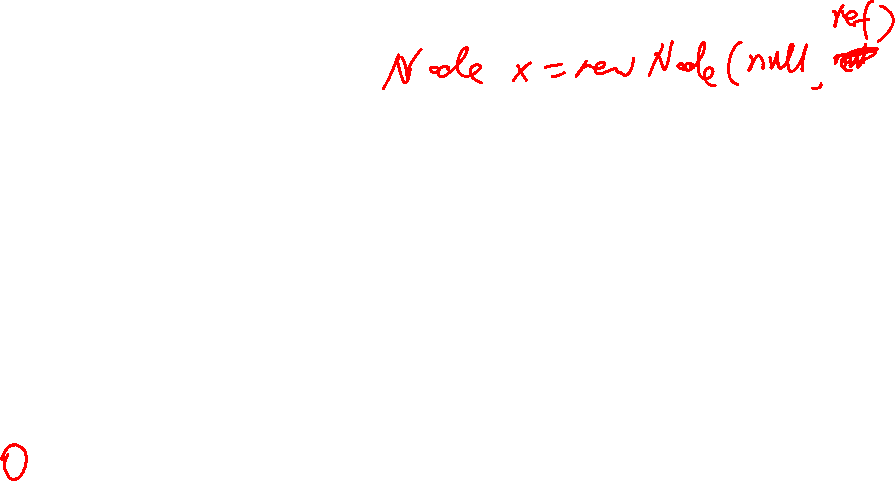 Node x = new Node(null, ref)
0